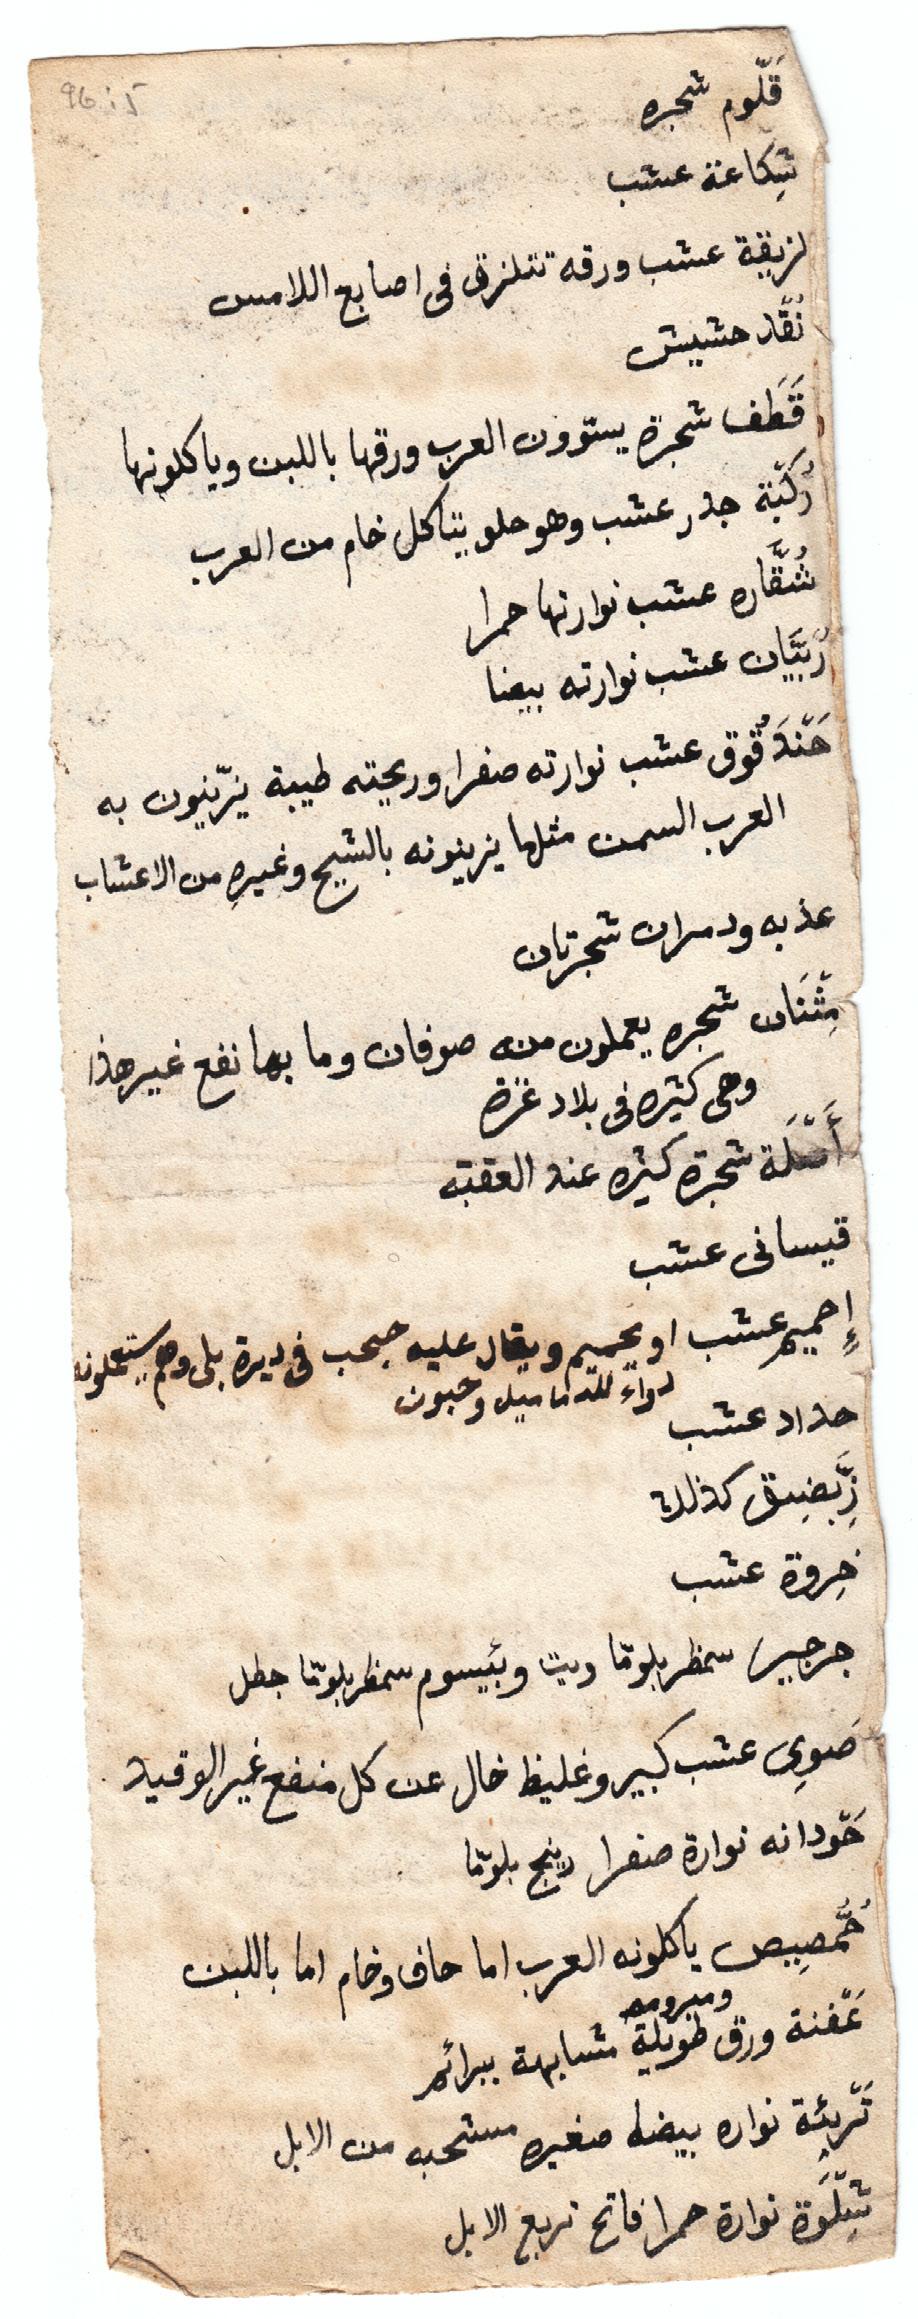 96:15
قَلّوم شجره
شِكاعة عشب
لزيقة عشب ورقه تتلزق فى اصابع اللامس
نُقّد حشيش
قَطَف شجرة يستوون العرب ورقها باللبن وياكلونها
رُكبّة جذر عشب وهو حلو يتاكل خام من العرب
شُقَّاره عشب نوارتها حمرا
رُبَيَّان عشب نوارته بيضا
حَنَدَقُوق عشب نوارته صفرا وريحته طيبة يزيّنون به
العرب السمن مثلما يزينونه بالشيح وغيره من الاعشاب
عذبه ودمران شجرتان
مِثَنَان شجره يعملون منه صوفان وما بها نفع غير هذا
وهى كثيره فى بلاد غزة
أَسَلَة شجرة كثيره عند العقبه
قيسانى عشب
إِحميم عشب او يحميم ويقال عليه فى ديرة بلى وهم يستعملونه
دواء للدماميل وحبون
حداد عشب
كذلك
خِروة عشب
جرجير
صَوى عشب كبير وغليظ خال عن كل منفع غير الوقيد
حَودانه نوارة صفرا
حُمَّصِيص ياكلونه العرب اما حاف وخام اما باللبن
ومبرومه
عَفنة ورق طويلة مشابهة
تَربِئة نواره بيضا صغيره مستحبه من الابل
شِلَّوَة نوارة حمرا فاتح تربع الابل